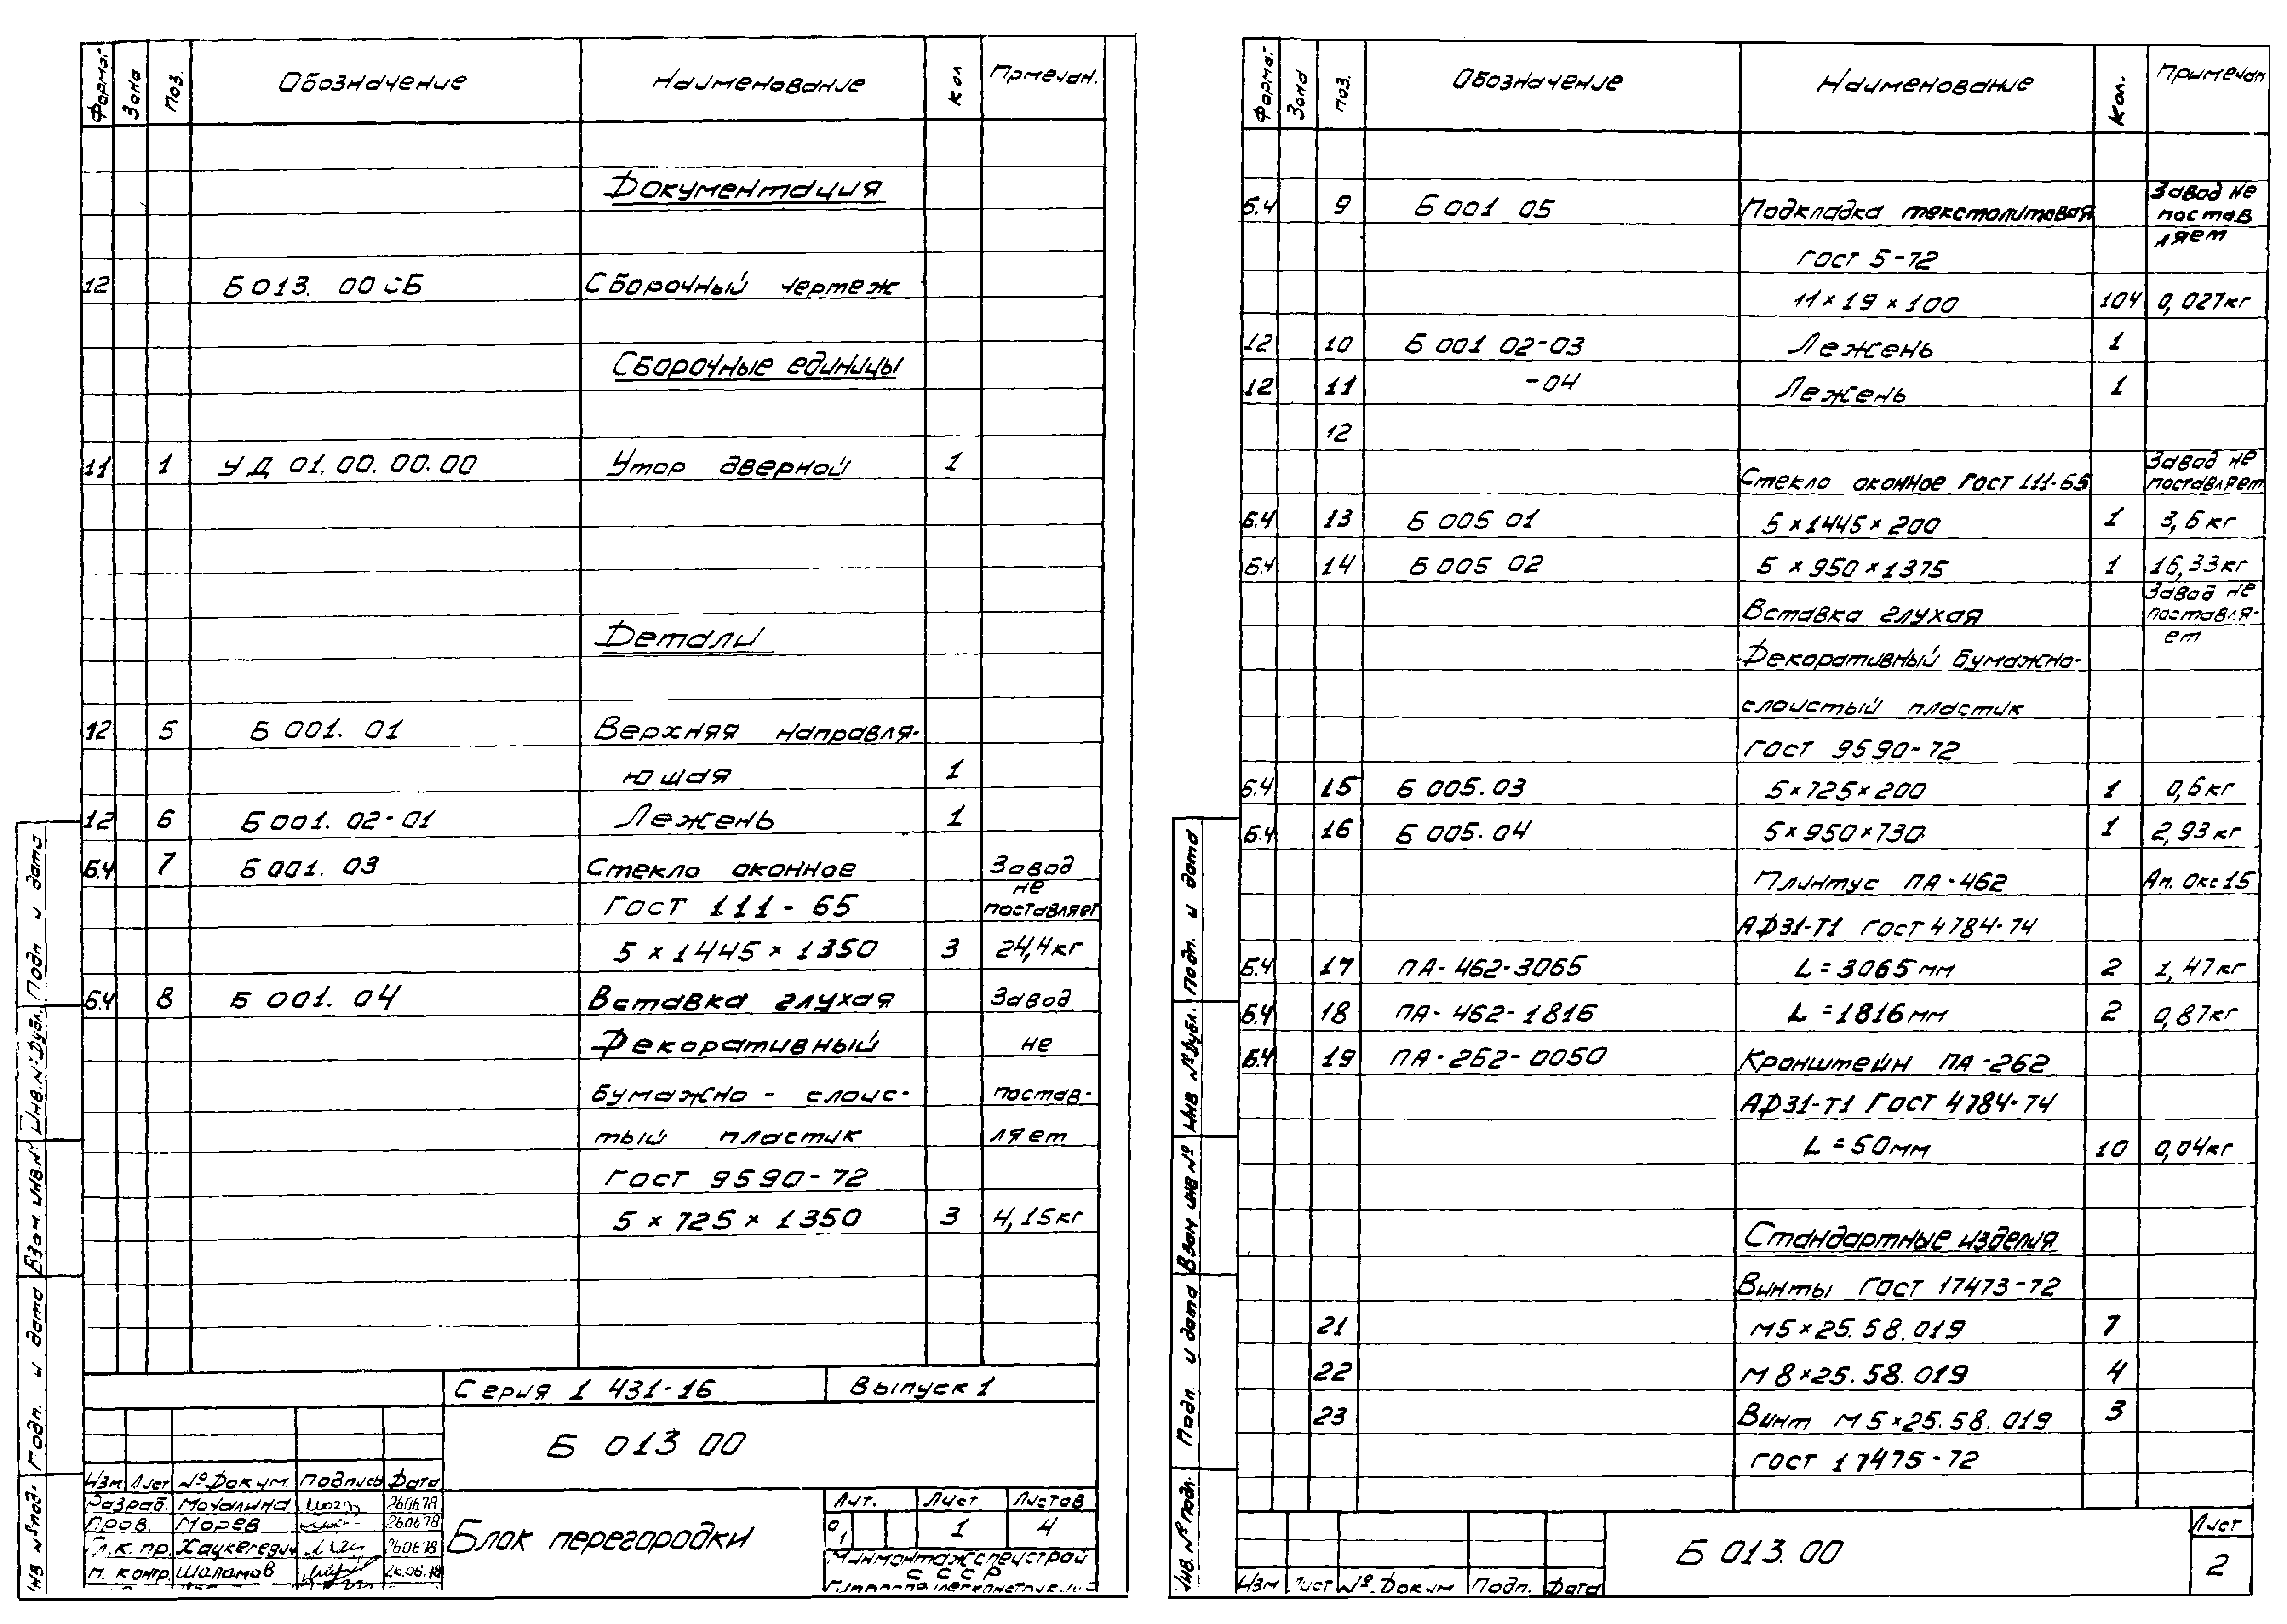 Формат Зона Поз. Обозначение Наименование Кол Прмечан.
Документация
12 Б 013. 00 СБ Сборочный чертеж
Сборочные единицы
11 1 УД 01. 00. 00. 00 Упор дверной 1
Детали
12 5 Б 001. 01 Верхняя направля-
ющая 1
12 6 Б 001. 02-01 Лежень 1
Б.Ч 7 Б 001. 03 Стекло оконное Завод
не
ГОСТ 111-65 поставляет
5 × 1445 × 1350 3 24,4кг
Б.Ч 8 Б 001. 04 Вставка глухая Завод
Декоративный не
бумажно - слоис- постав-
тый пластик ляет
ГОСТ 9590-72
5 × 725 × 1350 3 4,15кг
Серия 1 431-16 Выпуск 1
Б 013 00
Изм Лист № Докум. Подпись Дата
Разраб. Мочалина 26.06.78
Пров. Морев 26.06.78
Гл.к.пр. 26.06.78
Н. контр. Шаламов 26.06.78
Блок перегородки
Лит. Лист Листов
0 1 1 4
Минмонтажспецстрой
СССР
Инв № подл. Подп. и дата Взам. инв № Инв. № Дубл. Подп и дата
Формат Зона поз. Обозначение Наименование Кол. Примечан
Б.Ч 9 Б 001 05 Подкладка текстолитовая Завод не
постав
ляет
ГОСТ 5-72
11 × 19 × 100 104 0,027кг
12 10 Б 001 02-03 Лежень 1
12 11 -04 Лежень 1
12
Стекло оконное ГОСТ 111-65 Завод не
поставляет
Б.Ч 13 Б 005 01 5 × 1445 × 200 1 3,6 кг
Б.Ч 14 Б 005 02 5 × 950 × 1375 1 16,33кг
Вставка глухая Завод не
поставля-
ет
Декоративный бумажно-
слоистый пластик
ГОСТ 9590-72
Б.Ч 15 Б 005.03 5×725×200 1 0,6кг
Б.Ч 16 Б 005.04 5×950×730 1 2,93 кг
Плинтус ПА-462 Ан. Окс 15
АД31-Т1 ГОСТ 4784-74
Б.Ч 17 ПА-462-3065 L = 3065 мм 2 1,47кг
Б.Ч 18 ПА-462-1816 L = 1816 мм 2 0,87кг
Б.Ч 19 ПА-262-0050 Кронштейн ПА-262
АД31-Т1 ГОСТ 4784-74
L = 50 мм 10 0,04кг
Стандартные изделия
Винты ГОСТ 17473-72
21 М5×25. 58. 019 7
22 М8×25. 58. 019 4
23 Винт М5×25. 58. 019 3
ГОСТ 17475-72
Изм Лист № Докум Подп. Дата
Б 013. 00
Лист
2
Инв. № подл. Подп. и дата Взам инв № Инв № Дубл. Подп. и дата